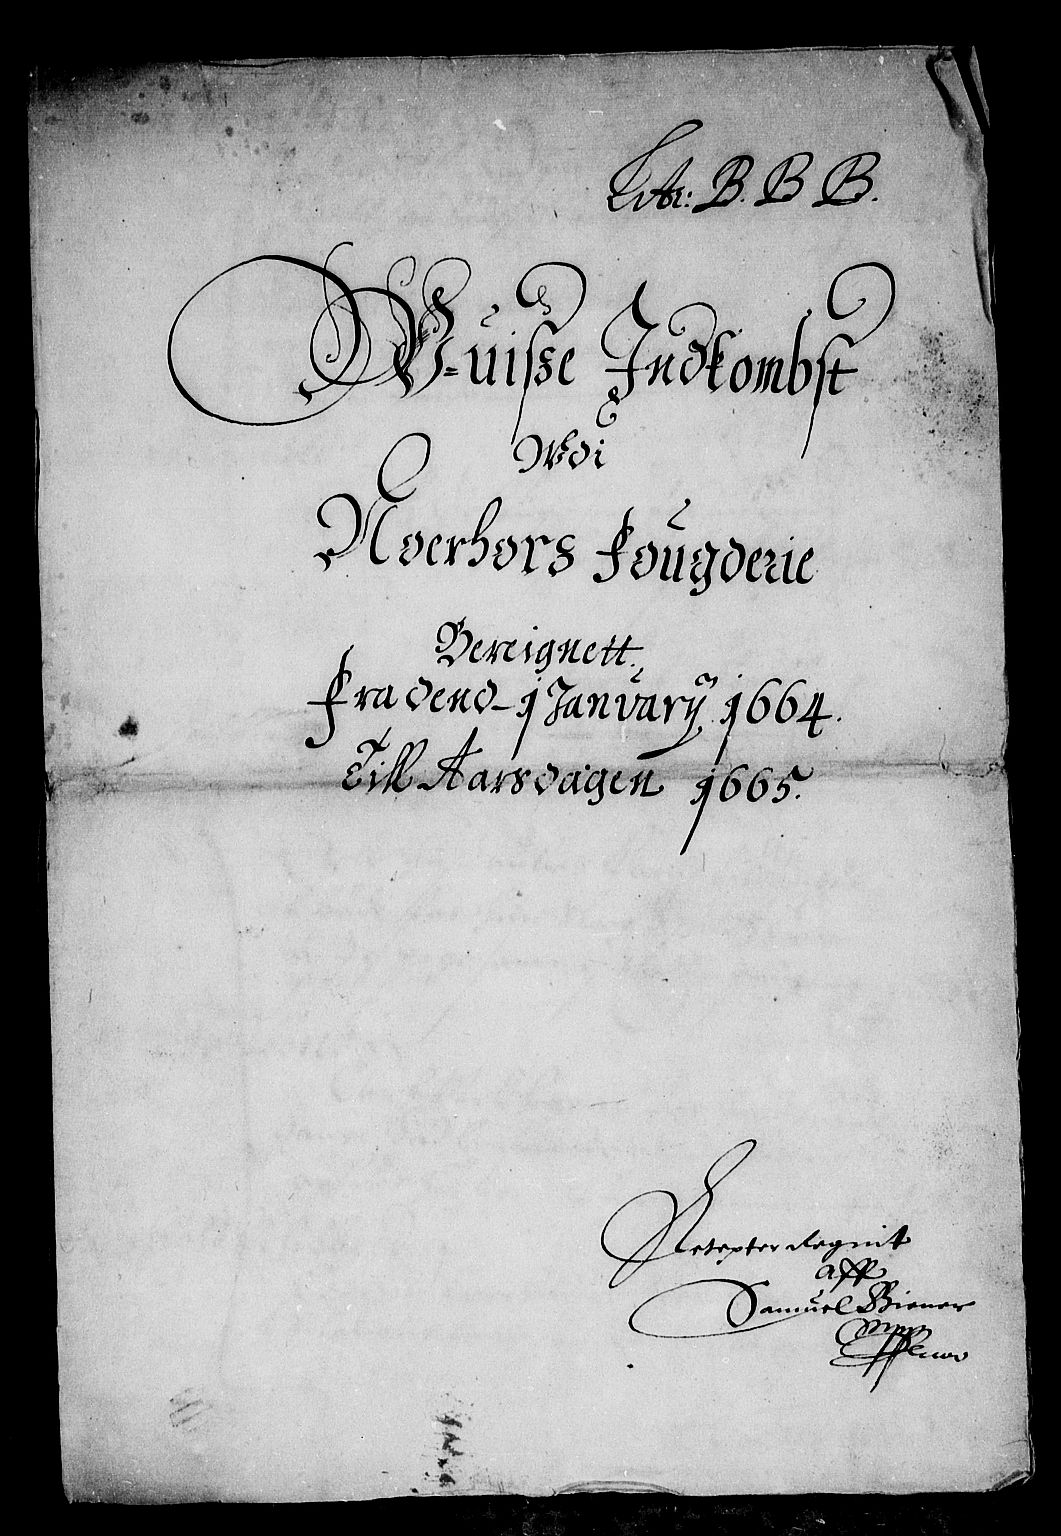 Litr: B. B B.
W-uisse Indkombst
Wdi
Noerhors fougderie
Bereignett
fra dend 1 January 1664.
Till Aarsdagen 1665.
aff
Samuel Biener